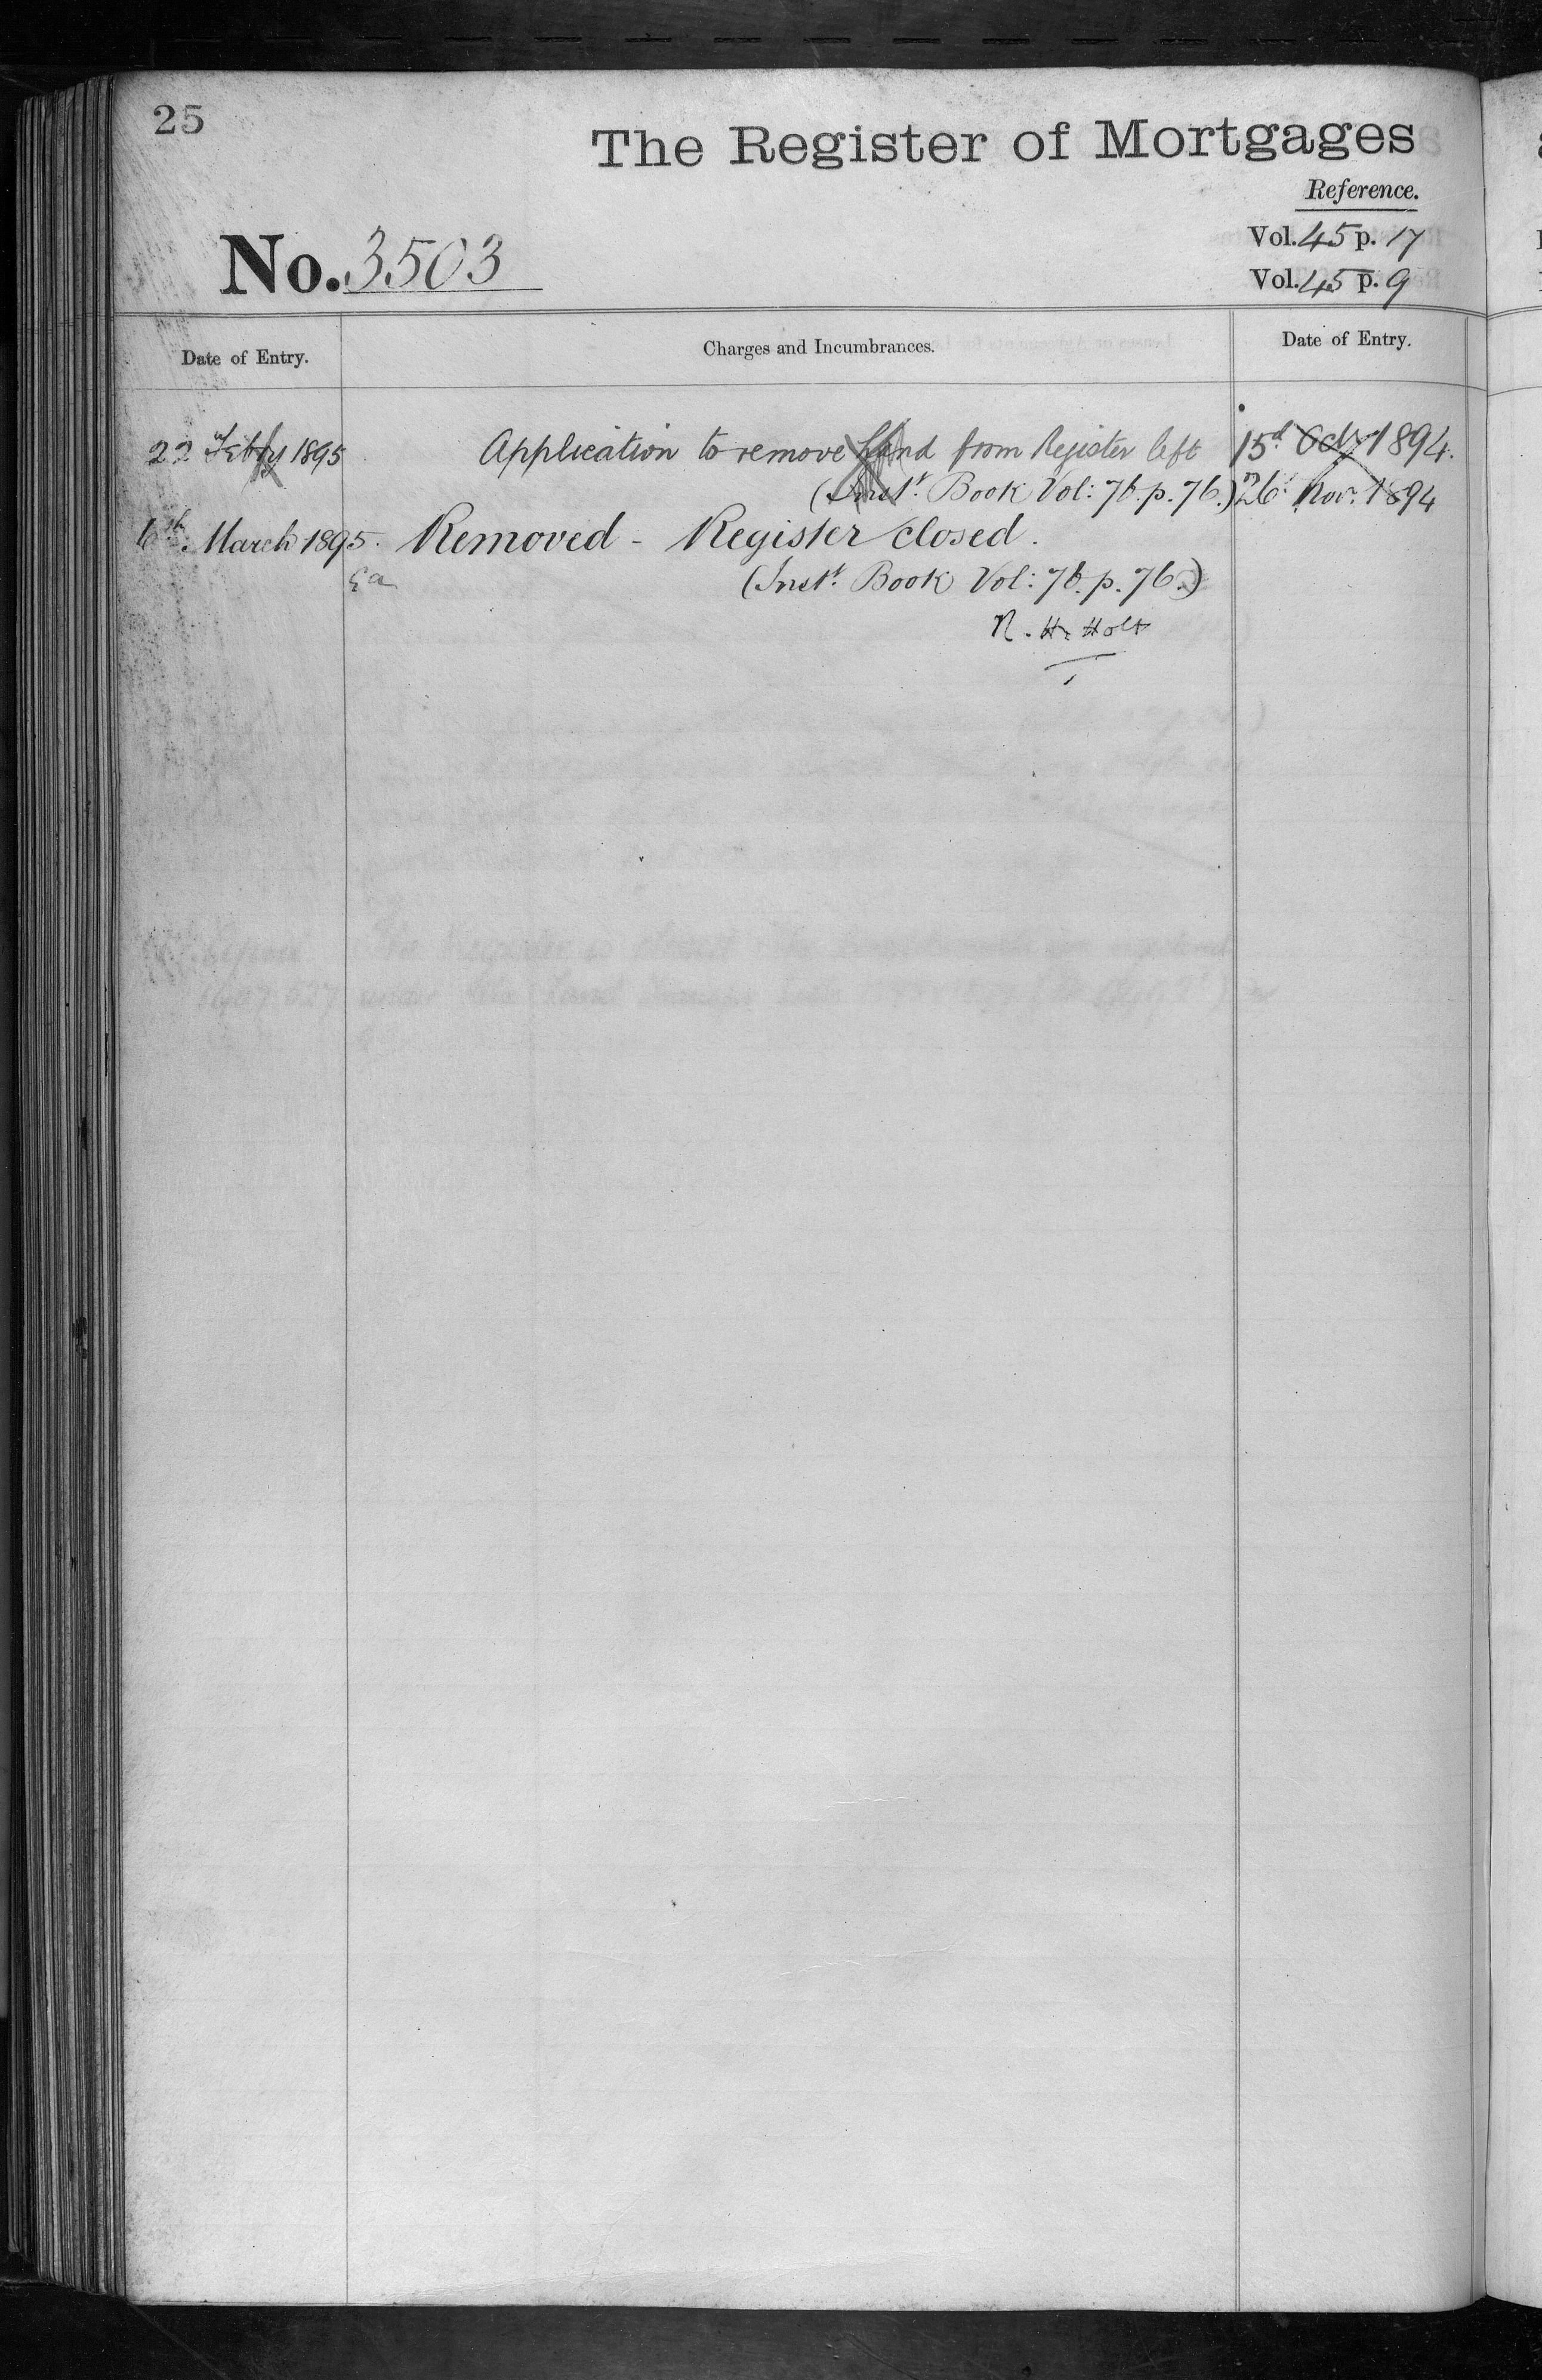 25
The Register of Mortgages
Reference.
No. 3503
Vol. 45 p. 17
Vol. 45 p. 9
Date of Entry.
Charges and Incumbrances.
Date of Entry.
22nd Feb'y 1895
Application to remove Land from Register left
15th Oct. 1894.
(Inst't. Book Vol: 76. p. 76.)
26th Nov. 1894
6th March 1895.
Removed - Register closed.
Ea
(Inst't. Book Vol: 76. p. 76.)
R. H. Holt